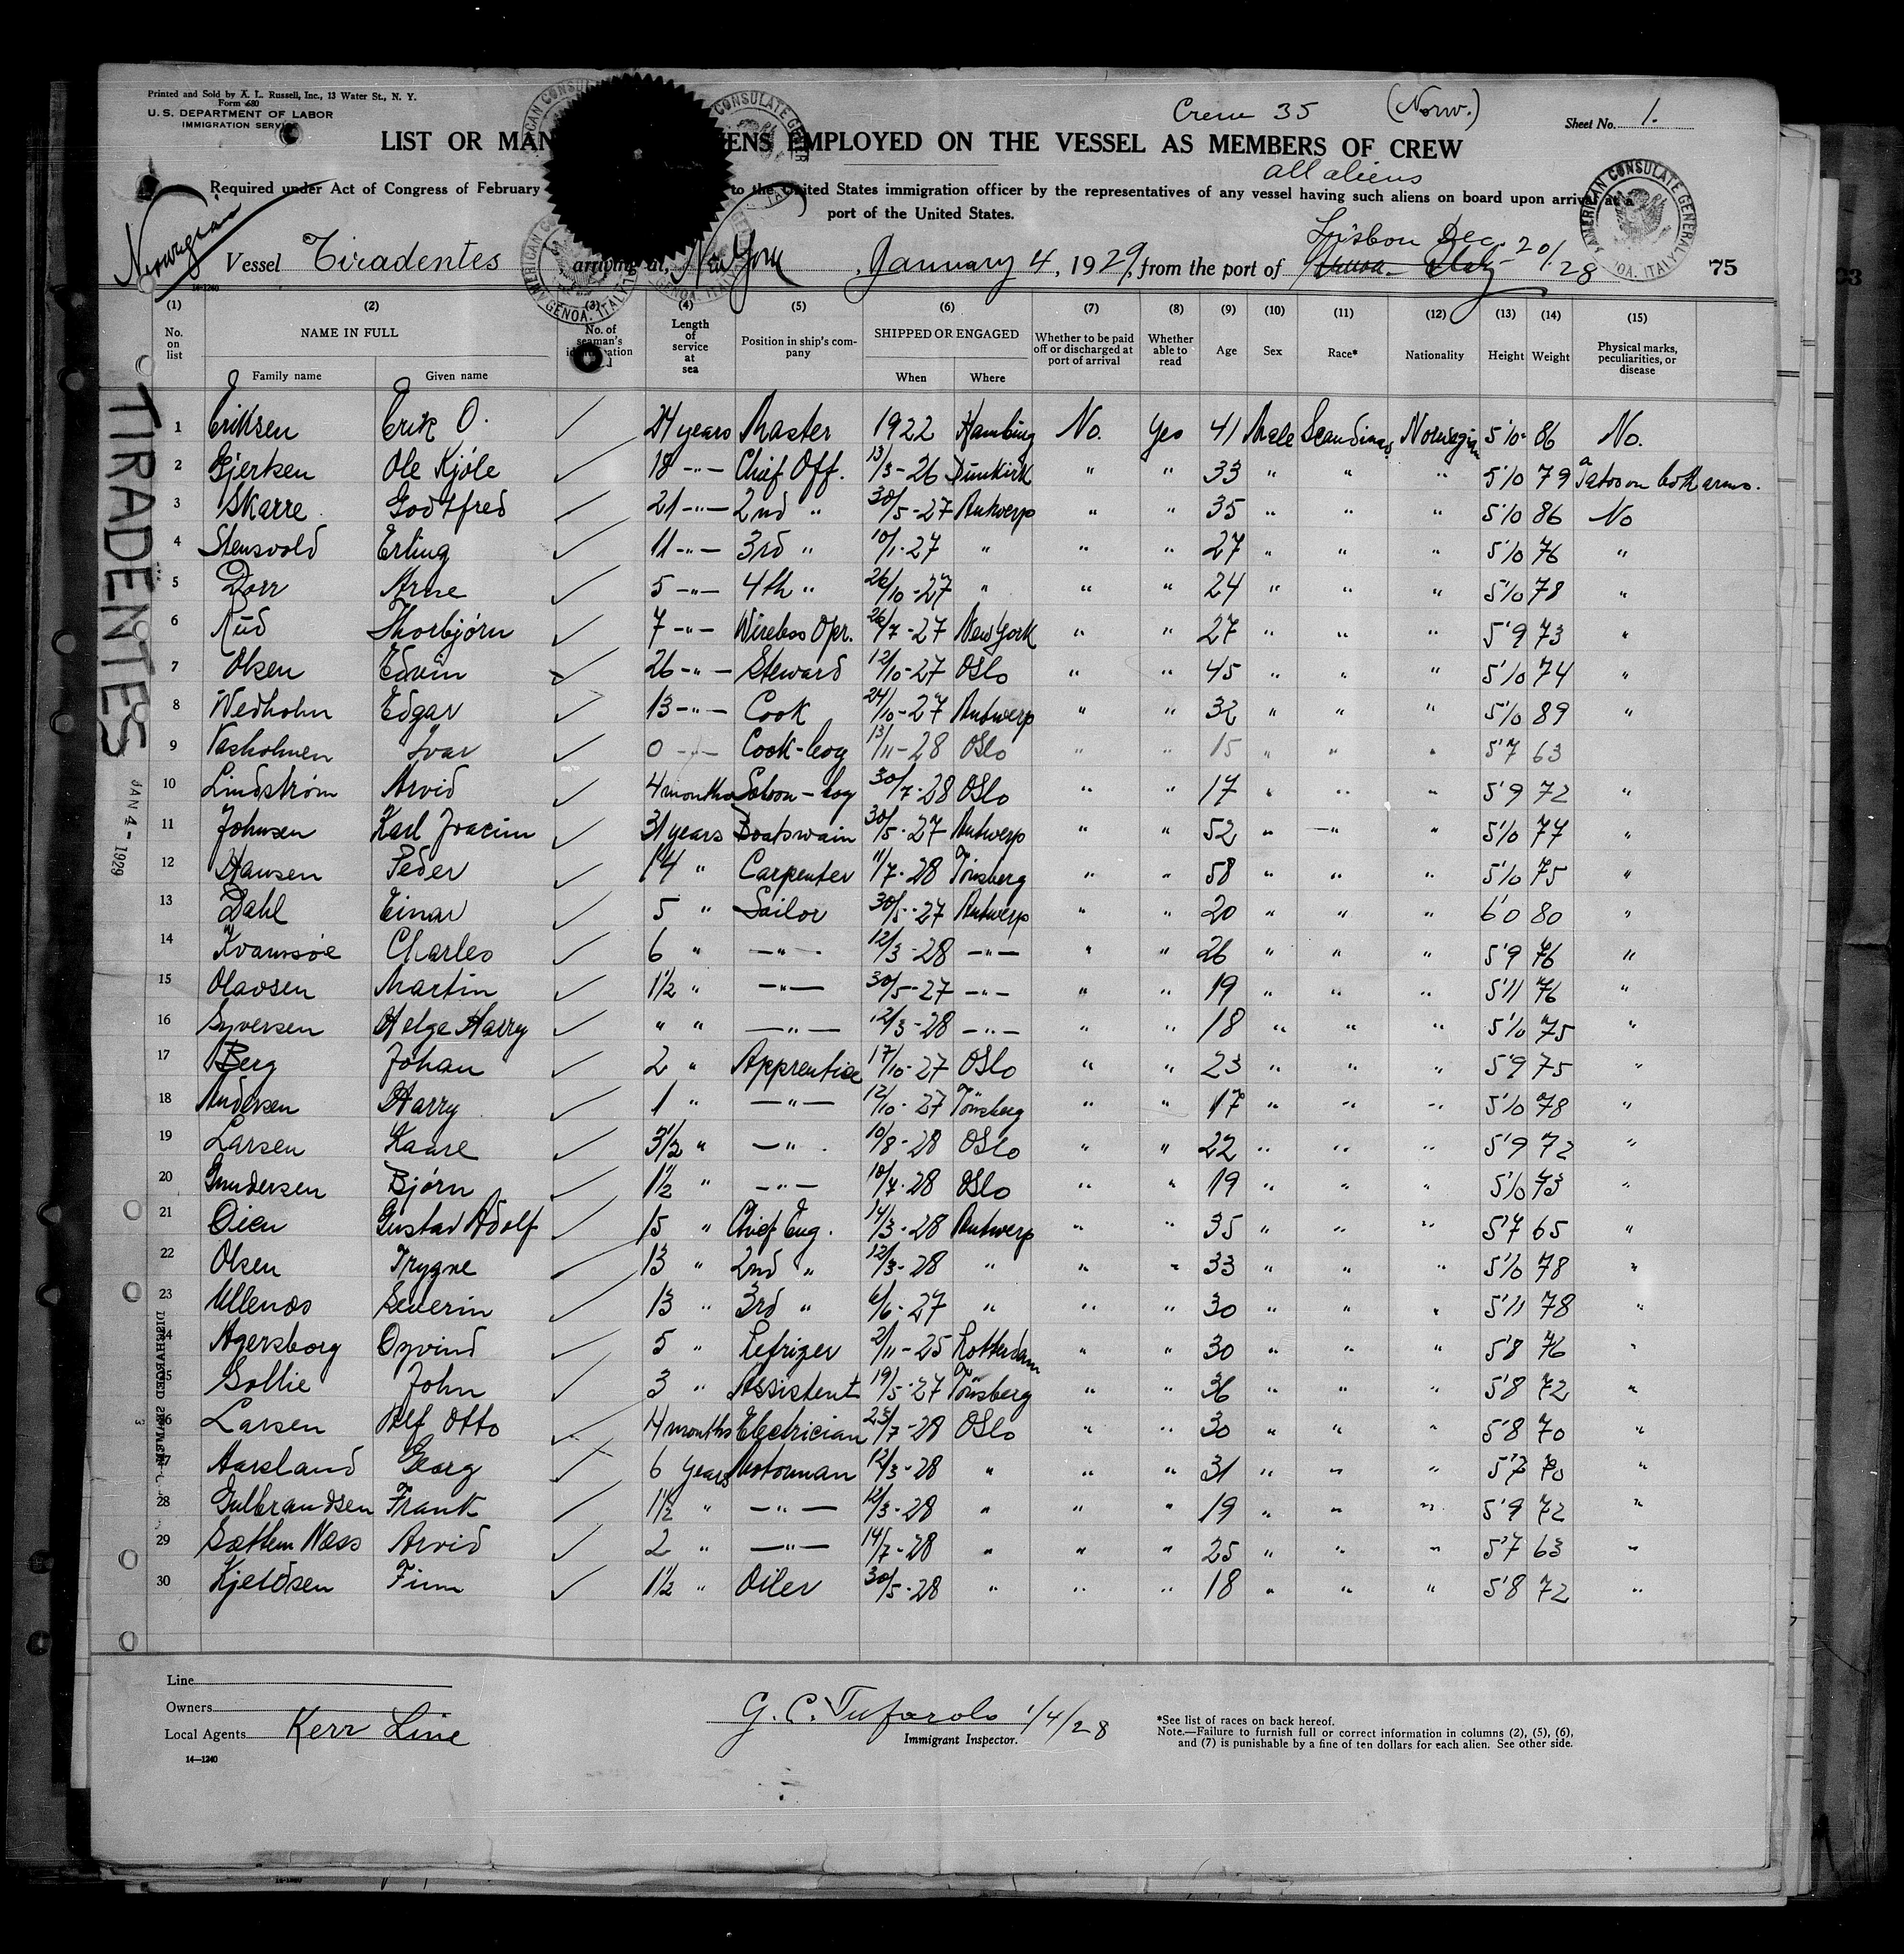 Printed and Sold by A. L. Russell, Inc., 13 Water St., N. Y.
Form 680
U. S. DEPARTMENT OF LABOR
IMMIGRATION SERVICE
Crew 35 (Norw.)
Sheet No. 1.
LIST OR MAN ENS EMPLOYED ON THE VESSEL AS MEMBERS OF CREW
all aliens
Required under Act of Congress of February to the United States immigration officer by the representatives of any vessel having such aliens on board upon arrival at a
port of the United States.
AMERICAN CONSULATE GENERAL GENOA. ITALY
Norwegian
Lisbon Dec. 20/28
Vessel Tiradentes, arriving at, New York, January 4, 1929, from the port of
75
(1) (2) (3) (4) (5) (6) (7) (8) (9) (10) (11) (12) (13) (14) (15)
No. on list NAME IN FULL No. of seaman's identification Length of service at sea Position in ship's company SHIPPED OR ENGAGED Whether to be paid off or discharged at port of arrival Whether able to read Age Sex Race* Nationality Height Weight Physical marks, peculiarities, or disease
Family name Given name When Where
TIRADENTES
JAN 4 - 1929
1 Eriksen Erik O. ✓ 24 years Master 1922 Hamburg No. Yes 41 Male Scandinav. Norwegian 5'10 86 No.
2 Gjertsen Ole Kjöle ✓ 18 -"- Chief Off. 13/3-26 Dunkirk " " 33 " " " 5'10 79 Tatoo on both arms.
3 Skarre Godtfred ✓ 21 -"- 2nd " 30/5-27 Antwerp " " 35 " " " 5'10 86 No
4 Stensvold Erling ✓ 11 -"- 3rd " 10/1-27 " " " 27 " " " 5'10 76 "
5 Dorr Arne ✓ 5 -"- 4th " 26/10-27 " " " 24 " " " 5'10 78 "
6 Rud Thorbjørn ✓ 7 -"- Wireless Opr. 26/7-27 New York " " 27 " " " 5'9 73 "
7 Olsen Edvin ✓ 26 -"- Steward 12/10-27 Oslo " " 45 " " " 5'10 74 "
8 Wedholm Edgar ✓ 13 -"- Cook 24/10-27 Antwerp " " 32 " " " 5'10 89 "
9 Vasholmen Ivar ✓ 0 -"- Cook-boy 13/11-28 Oslo " " 15 " " " 5'7 63
10 Lindstrøm Arvid ✓ 4 months Saloon-boy 30/7-28 Oslo " " 17 " " " 5'9 72 "
11 Johnsen Karl Joacim ✓ 31 years Boatswain 30/5-27 Antwerp " " 52 " -"- " 5'10 77 "
12 Hansen Peder ✓ 14 " Carpenter 11/7-28 Tönsberg " " 58 " " " 5'10 75 "
13 Dahl Einar ✓ 5 " Sailor 30/5-27 Antwerp " " 20 " " " 6'0 80 "
14 Kvamsöe Charles ✓ 6 " -"- 12/3-28 -"- " " 26 " " " 5'9 76 "
15 Olavsen Martin ✓ 1½ " -"- 30/5-27 -"- " " 19 " " " 5'11 76 "
16 Syversen Helge Harry ✓ " " -"- 12/3-28 -"- " " 18 " " " 5'10 75 "
17 Berg Johan ✓ 2 " Apprentice 17/10-27 Oslo " " 23 " " " 5'9 75 "
18 Andersen Harry ✓ 1 " -"- 12/10-27 Tönsberg " " 17 " " " 5'10 78 "
19 Larsen Kaare ✓ 3½ " -"- 10/8-28 Oslo " " 22 " " " 5'9 72 "
20 Gundersen Bjørn ✓ 1½ " -"- 10/7-28 Oslo " " 19 " " " 5'10 73 "
21 Oien Gustav Adolf ✓ 15 " Chief Eng. 14/3-28 Antwerp " " 35 " " " 5'7 65 "
22 Olsen Trygve ✓ 13 " 2nd " 12/3-28 " " " 33 " " " 5'10 78 "
23 Ullenes Severin ✓ 13 " 3rd " 6/6-27 " " " 30 " " " 5'11 78 "
24 Agersborg Oyvind ✓ 5 " Refriger 2/11-25 Rotterdam " " 30 " " " 5'8 76 "
25 Sollie John ✓ 3 " Assistent 19/5-27 Tönsberg " " 36 " " " 5'8 72 "
26 Larsen Alf Otto ✓ 4 months Electrician 23/7-28 Oslo " " 30 " " " 5'8 70 "
27 Aarsland Georg ✓ 6 years Motorman 12/3-28 " " " 31 " " " 5'7 70 "
28 Gulbrandsen Frank ✓ 1½ " -"- 12/3-28 " " " 19 " " " 5'9 72 "
29 Sættem Næss Arvid ✓ 2 " -"- 14/7-28 " " " 25 " " " 5'7 63 "
30 Kjeldsen Finn ✓ 1½ " Oiler 30/5-28 " " " 18 " " " 5'8 72 "
DISCHARGED SEAMEN
Line
Owners
Local Agents Kerr Line
14—1240
G. C. Tufarolo 1/4/28
Immigrant Inspector.
*See list of races on back hereof.
Note.—Failure to furnish full or correct information in columns (2), (5), (6),
and (7) is punishable by a fine of ten dollars for each alien. See other side.